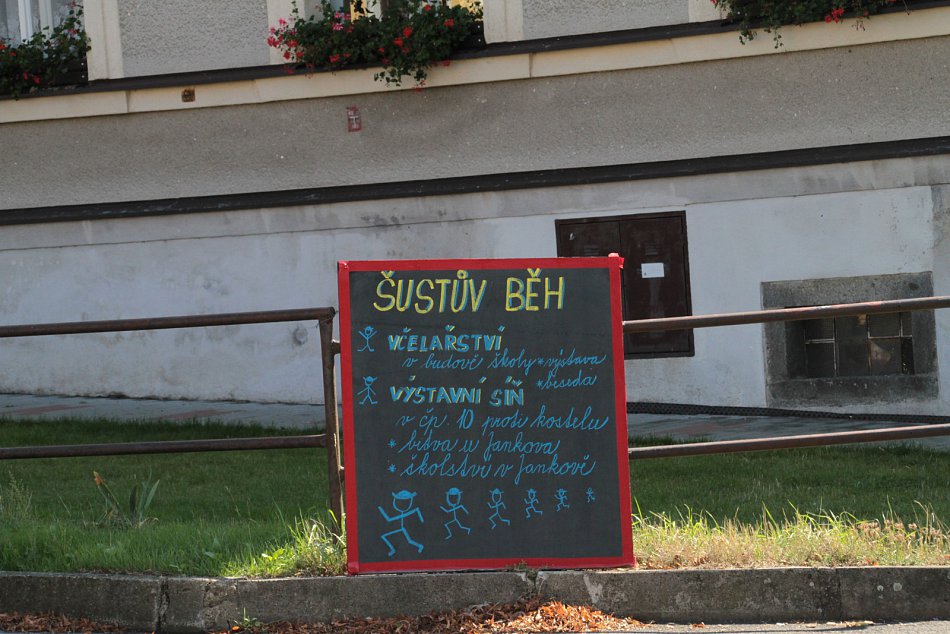 ŠUSTŮV BĚH
VČELAŘSTVÍ
v budově školy * výstava
* beseda
VÝSTAVNÍ SÍŇ
v čp. 10 proti kostelu
* bitva u Jankova
* školství v Jankově